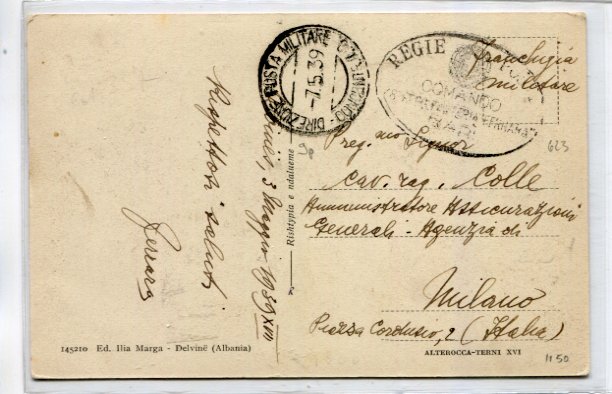 Rispettosi saluti
Ferraro
3 Maggio 1939 XVII
Rishtypia e ndalueme
DIREZIONE POSTA MILITARE
-7.5.39
REGIE
COMANDO
Franchigia
militare
623
90
Preg.mo Signor
Cav. rag. Colle
Amministratore Assicurazioni
Generali - Agenzia di
Milano
Piazza Cordusio, 2 (Italia)
145210 Ed. Ilia Marga - Delvinë (Albania)
ALTEROCCA-TERNI XVI
1150